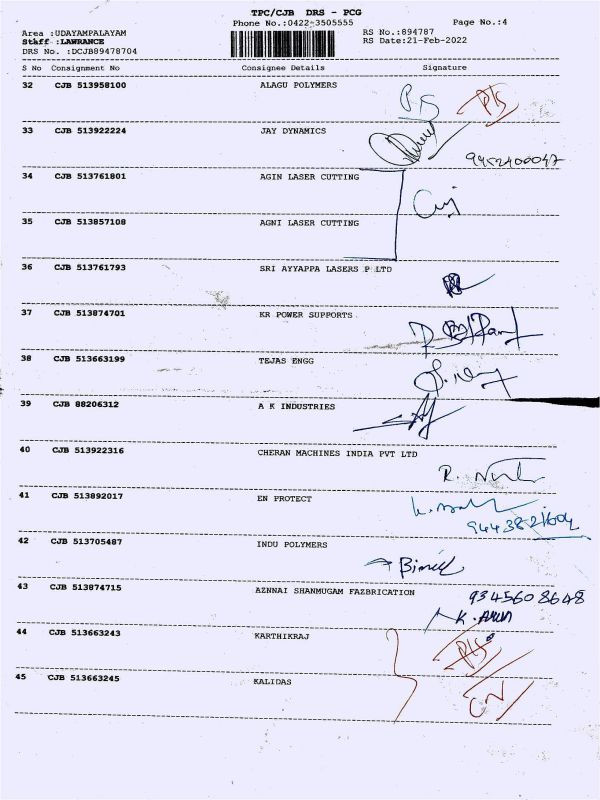 TPC/CJB DRS - PCG
Phone No.:0422-3505555 Page No.:4
Area :UDAYAMPALAYAM RS No.:894787
Staff :LAWRANCE RS Date:21-Feb-2022
DRS No. :DCJB89478704
S No Consignment No Consignee Details Signature
32 CJB 513958100 ALAGU POLYMERS
33 CJB 513922224 JAY DYNAMICS
9952400047
34 CJB 513761801 AGIN LASER CUTTING
35 CJB 513857108 AGNI LASER CUTTING
36 CJB 513761793 SRI AYYAPPA LASERS P LTD
37 CJB 513874701 KR POWER SUPPORTS
38 CJB 513663199 TEJAS ENGG
39 CJB 88206312 A K INDUSTRIES
40 CJB 513922316 CHERAN MACHINES INDIA PVT LTD
41 CJB 513892017 EN PROTECT
42 CJB 513705487 INDU POLYMERS
43 CJB 513874715 AZNNAI SHANMUGAM FAZBRICATION 9345608648
K. ARUN
44 CJB 513663243 KARTHIKRAJ
45 CJB 513663245 KALIDAS